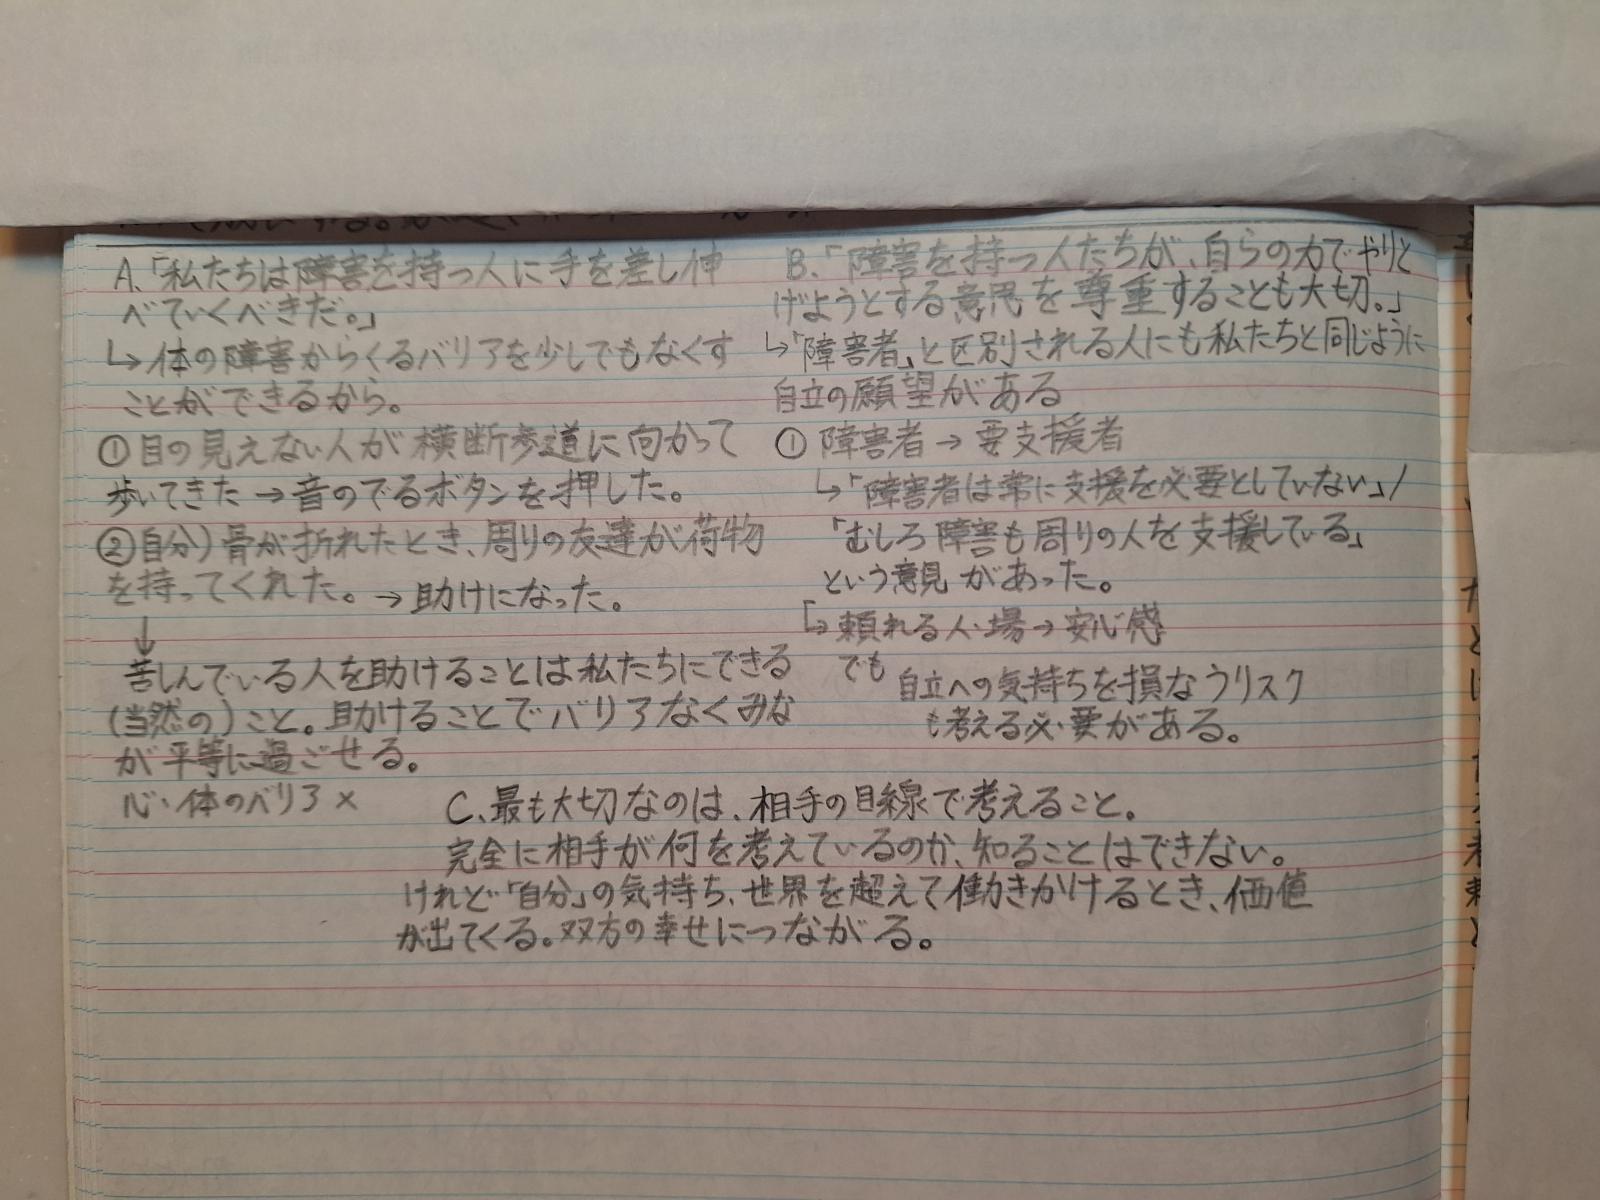 A.「私たちは障害を持つ人に手を差し伸
べていくべきだ。」
↳体の障害からくるバリアを少しでもなくす
ことができるから。
①目の見えない人が横断歩道に向かって
歩いてきた→音のでるボタンを押した。
②自分)骨が折れたとき、周りの友達が荷物
を持ってくれた。→助けになった。
↓
苦しんでいる人を助けることは私たちにできる
(当然の)こと。助けることでバリアなくみな
が平等に過ごせる。
心・体のバリア×
B.「障害を持つ人たちが、自らの力でやりと
げようとする意思を尊重することも大切。」
↳「障害者」と区別される人にも私たちと同じように
自立の願望がある
①障害者→要支援者
↳「障害者は常に支援を必要としていない」/
「むしろ障害も周りの人を支援している」
という意見があった。
↳頼れる人・場→安心感
でも 自立への気持ちを損なうリスク
も考える必要がある。
C.最も大切なのは、相手の目線で考えること。
完全に相手が何を考えているのか、知ることはできない。
けれど「自分」の気持ち、世界を超えて働きかけるとき、価値
が出てくる。双方の幸せにつながる。